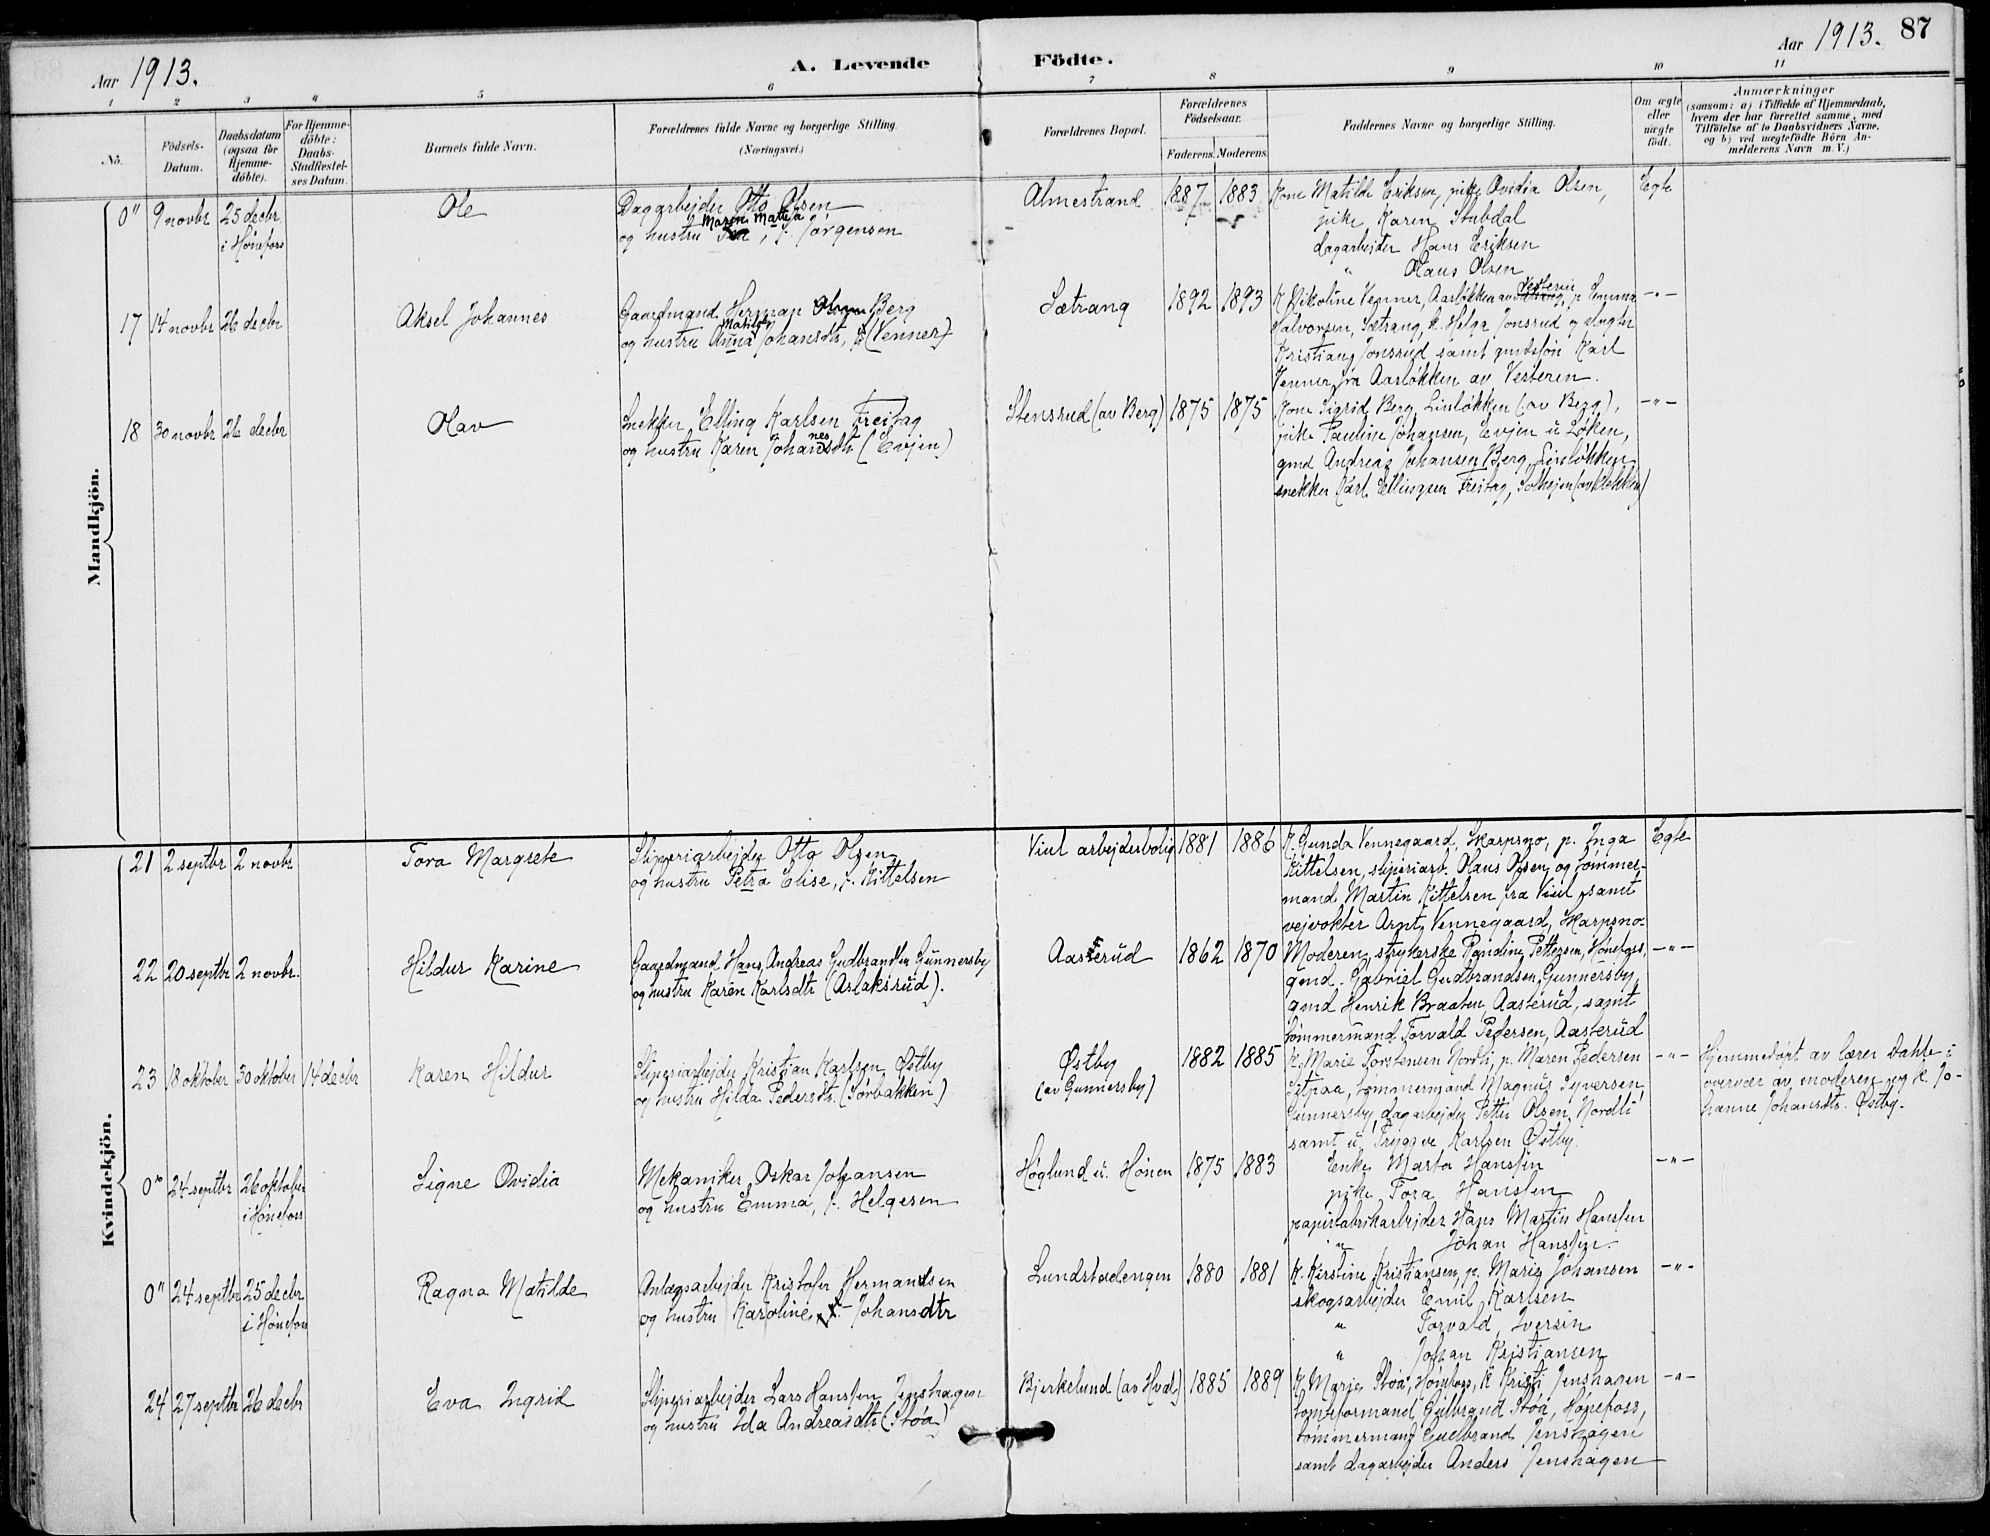 Aar 1913.
A. Levende Födte.
Aar 1913. 87
1 2 3 4 5 6 7 8 9 10 11
No.
Födsels-
Datum.
Daabsdatum
(ogsaa for
Hjemme-
döbte).
For Hjemme-
döbte:
Daabs-
Stadfæstel-
ses Datum.
Barnets fulde Navn.
Forældrenes fulde Navne og borgerlige Stilling.
(Næringsvei.)
Forældrenes Bopæl.
Forældrenes
Födselsaar.
Faderens. Moderens.
Faddernes Navne og borgerlige Stilling.
Om ægte
eller
uægte
födt.
Anmærkninger
(saasom: a) i Tilfælde af Hjemmedaab,
hvem der har forrettet samme, med
Tilföielse af to Daabsvidners Navne,
og b) ved uægtefödte Börn An-
melderens Navn m. V.)
Mandkjön.
0" 9 novbr 25 decbr.
i Hönefoss
Ole
Dagarbejder Otto Olsen
Maren Matea
og hustru f. Jörgensen
Almestrand 1887 1883
Kone Matilde Eriksen, pike Ovidia Olsen,
pike Karen Stubdal
dagarbejder Hans Eriksen
" Olaus Olsen
Egte
17 14 novbr 26 decbr
Aksel Johannes
Gaardmand Herman Olsen Berg
Matilde
og hustru Anna Johansdtr, (Venner)
Sætrang 1892 1893
Vesteren
K. Nikoline Venner, Aasløkken av Sætrang, p. Emma
Halvorsen, Sætrang, k. Helga Jonsrud og
Kristian Jonsrud samt Karl
Venner fra Aasløkken av Vesteren.
-"-
18 30 novbr 26 decbr
Olav
Snekker Elling Karlsen Freitag
og hustru Karen Johannesdtr (Evjen)
Stensrud (av Berg) 1875 1875
Kone Sigrid Berg, Linløkken (av Berg),
pike Pauline Johansen, Evjen u. Løken,
gmd Andreas Johansen Berg, Linløkken
snekker Karl Ellingsen Freitag, Solhejm (av Klekken)
-"-
Kvindekjön.
21 2 septbr 2 novbr
Tora Margrete
Sliperiarbejder Otto Olsen
og hustru Petra Elise, f. Kittelsen
Viul arbejderbolig 1881 1886
K. Gunda Vennegaard, Skarpsno, p. Inga
Kittelsen, sliperiarb. Olaus Olsen og tømmer-
mand Martin Kittelsen fra Viul, samt
vejvokter Arnt Vennegaard, Skarpsno.
Egte
22 20 septbr 2 novbr.
Hildur Karine
Gaardmand Hans Andreas Gudbrandsen Gunnersby
og hustru Karen Karlsdtr (Aslaksrud).
Aasterud 1862 1870
Moderen, strykerske Randine Pettersen, Hönefoss,
gmd. Gabriel Gudbrandsen Gunnersby,
gmd Henrik Braaten, Aasterud, samt
tømmermand Torvald Pedersen, Aasterud
-"-
23 18 oktober 30 oktober 14 decbr
Karen Hildur
Sliperiarbejder Kristian Karlsen Østby
og hustru Hilda Pedersdtr. (Sørbakken)
Østby
(av Gunnersby)
1882 1885
K. Marie Torstensen Nordli, p. Maren Pedersen
Setpaa, tømmermand Magnus Syversen
Gunnersby, dagarbejder Petter Olsen, Nordli
samt u. Tryggve Karlsen Østby.
-"-
Hjemmedøpt av lærer Dahle i
overvær av moderen og k. Jo-
hanne Johansdtr. Østby.
0" 24 septbr 26 oktober
i Hönefoss
Signe Ovidia
Mekaniker Oskar Johansen
og hustru Emma, f. Helgesen
Høglund u. Hönen 1875 1883
Enke Marta Hansen
pike Tora Hansen
papirfabrikarbejder Hans Martin Hansen
" Johan Hansen.
-"-
0" 24 septbr 25 decbr
i Hönefoss
Ragna Matilde
Anlægsarbejder Kristofer Hermandsen
og hustru Karoline Johansdtr
Lundstadengen 1880 1881
K. Kirstine Kristiansen, p. Marie Johansen
skogsarbejder Emil Karlsen
" Torvald Iversen
" Johan Kristiansen
-"-
24 27 septbr 26 decbr
Eva Ingrid
Sliperiarbejder Lars Hansen Jenshagen
og hustru Ida Andreasdtr (Stöa)
Bjerkelund (av Hval) 1885 1889
K. Marie Stöa, Hönefoss, k. Kristi Jenshagen
tomteformand Gulbrand Stöa, Hönefoss,
tømmermand Gudbrand Jenshagen
samt dagarbejder Anders Jenshagen
-"-